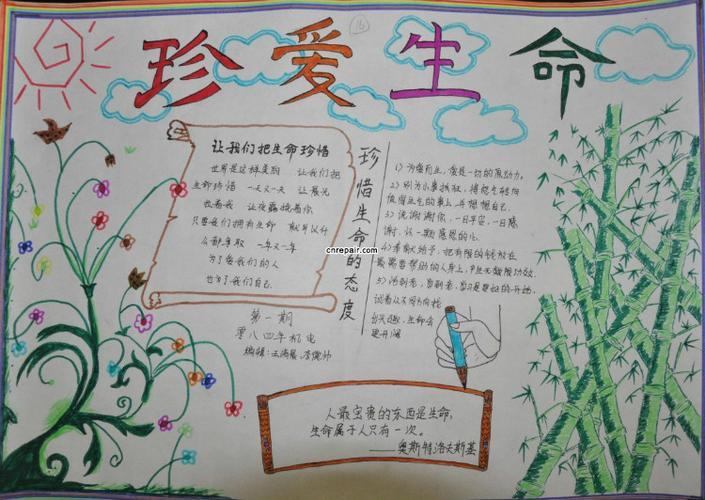 珍爱生命
16
让我们把生命珍惜
世界是这样美丽 让我们把
生命珍惜 一天又一天 让晨光
拉着我 让夜露挽着你
只要我们拥有生命 就可以
争取 一年又一年
为了爱我们的人
也为了我们自己
cnrepair.com
第一期
零八四年机电
编辑:
珍惜生命的态度
1) 为爱而生,爱是一切的原动力。
2) 别为小事抓狂,
值得正生的事上,
3) 说谢谢你,一日早安,一日感
谢,以一颗感恩的心。
4) 奉献给予,把有限的钱放在
最需要帮助的人身上,
5) 活到老,学到老,学习是
试着从不同
生命会
更开阔
人最宝贵的东西是生命,
生命属于人只有一次。
——奥斯特洛夫斯基